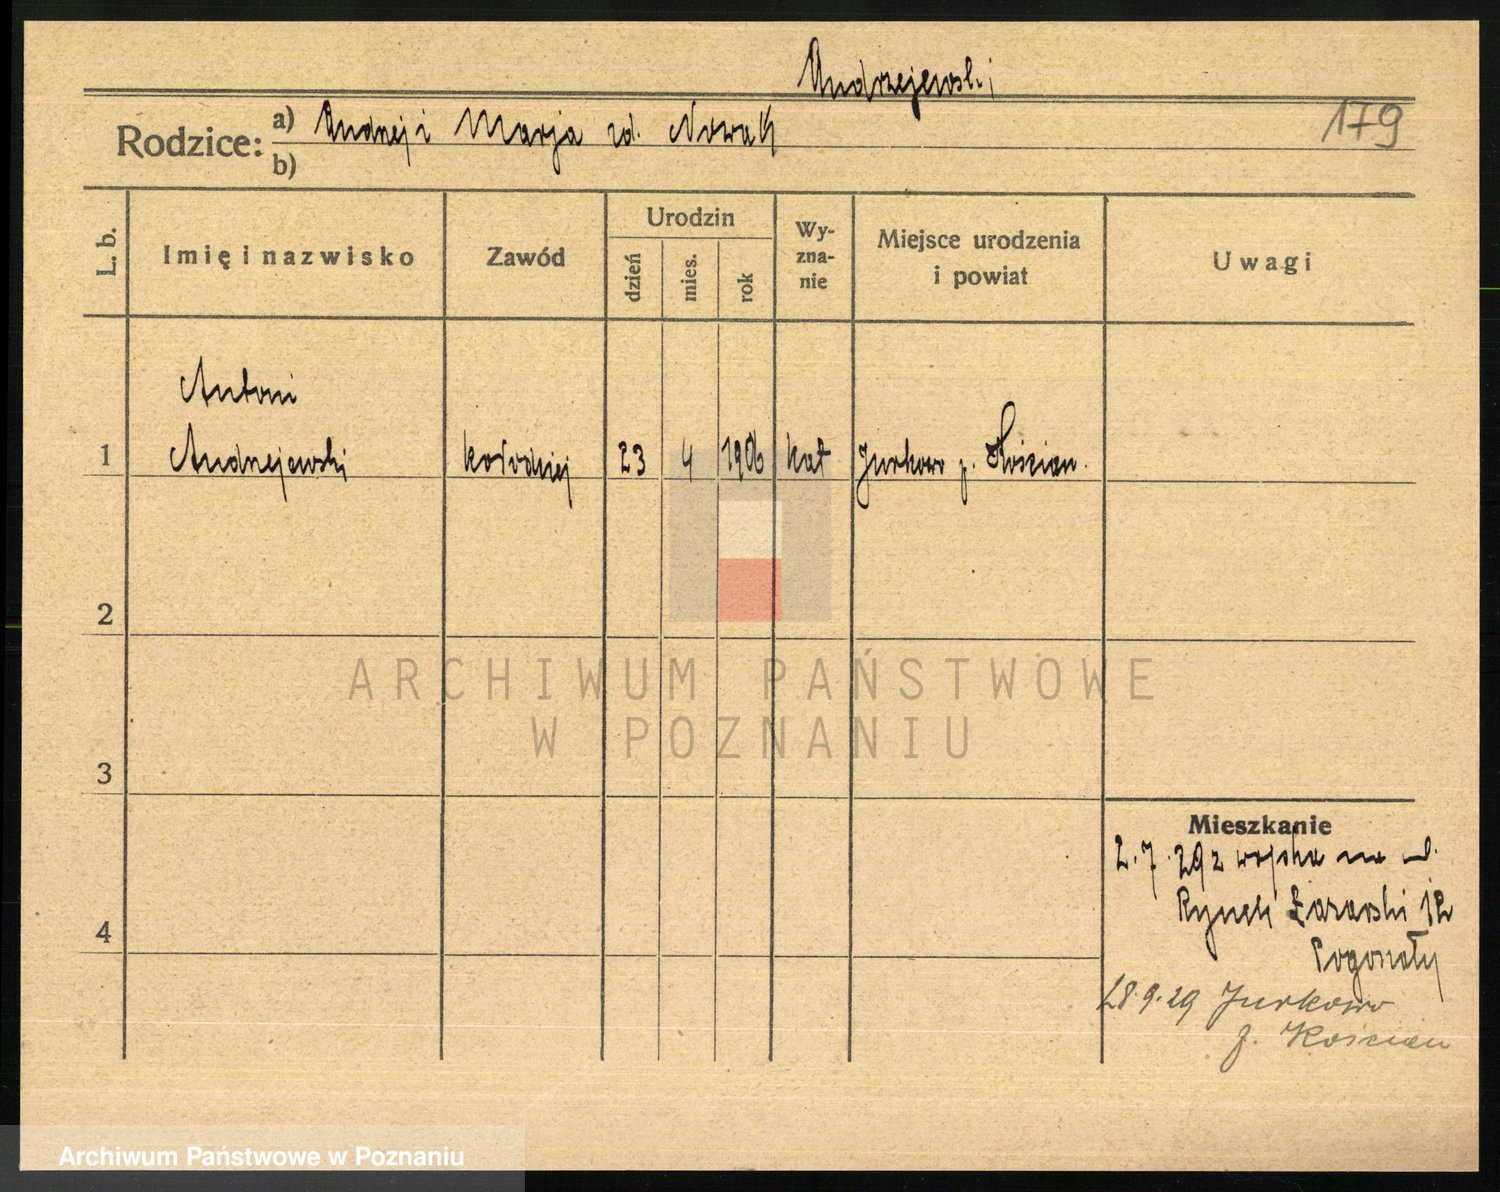 Andrzejewski
Rodzice: a) Andrzej i Marja zd. Nowak
179
b)
L. b.
Imię i nazwisko
Zawód
Urodzin
dzień
mies.
rok
Wy-
zna-
nie
Miejsce urodzenia
i powiat
Uwagi
Antoni
1 Andrzejewski kołodziej 23 4 1906 kat Jurkowo p. Kościan.
2
3
4
Mieszkanie
2.7.29 z wojska na ul.
Rynek Łazarski 12
28.9.29 Jurkowo
p. Kościan
ARCHIWUM PAŃSTWOWE
W POZNANIU
Archiwum Państwowe w Poznaniu